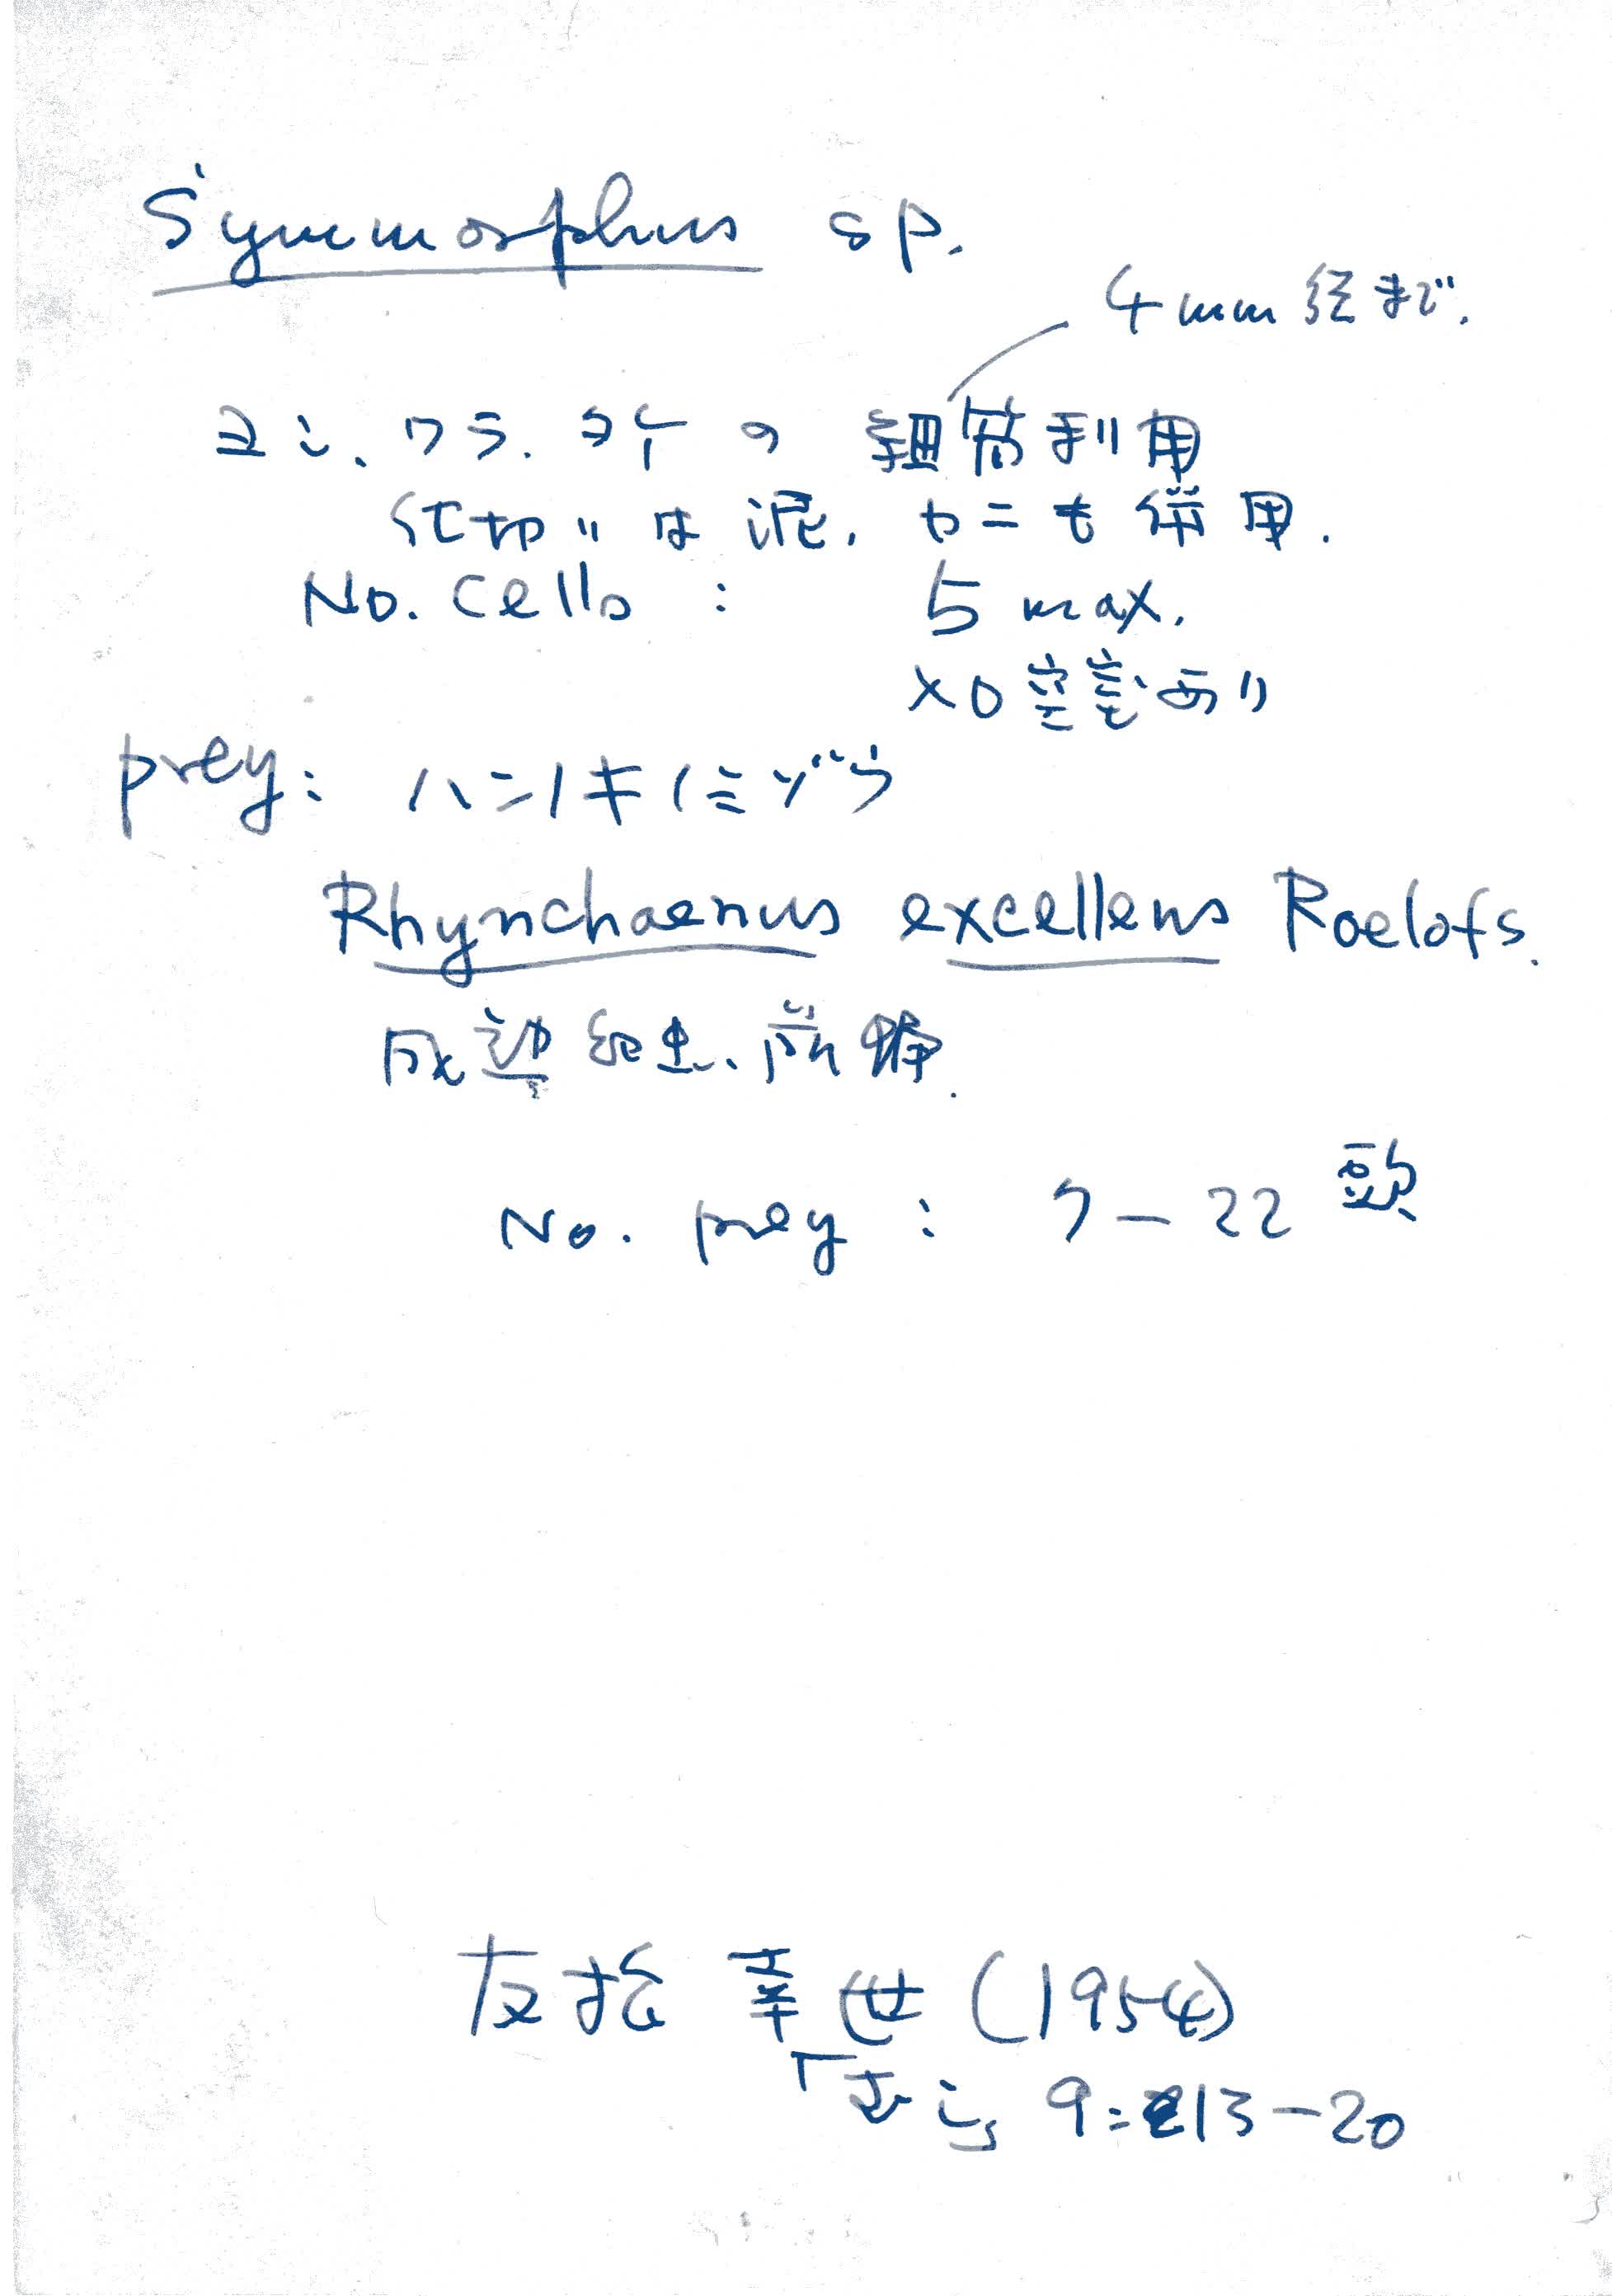 Symmorphus sp.
4mm 径まで.
ヨシ、ワラ. タケ の 細筒利用
仕切りは泥, ヤニも併用.
No. Cells : 5 max.
×0 空室あり
prey: ハンノキノミゾウ
Rhynchaenus excellens Roelofs.
成熟幼虫、前蛹.
No. prey : 7－22 頭
友拾 幸世 (1954)
9: 13－20